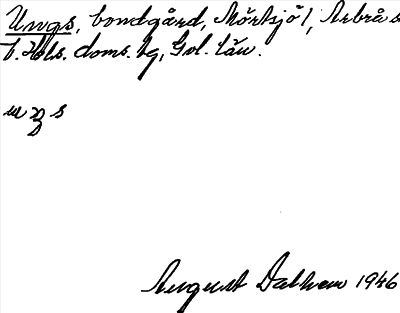 Ungs, bondgård, Mörtsjö 1, Arbrå s
v. Hels. doms. bg, Gvl. län.
uŋs
August Dalhem 1946